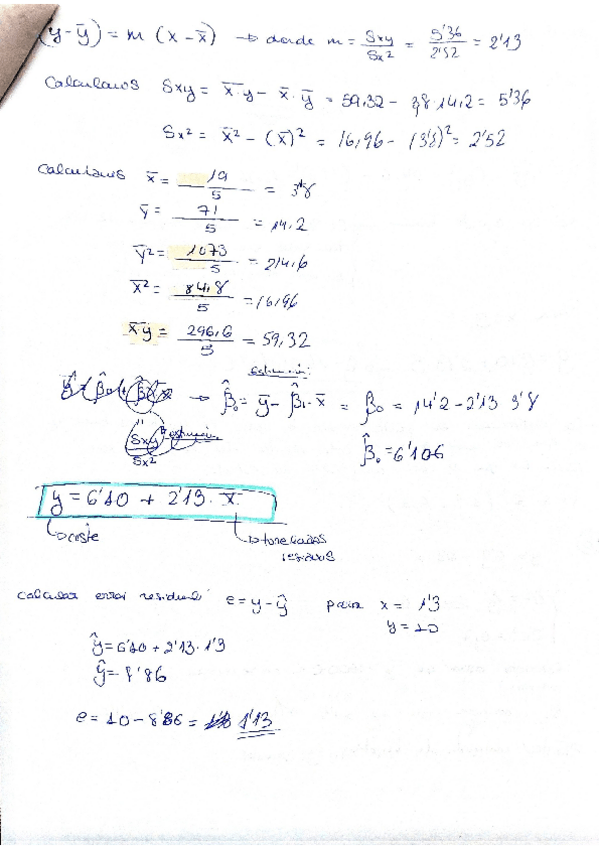 (y-ȳ) = m (x-x̄) → donde m = Sxy/Sx² = 5'36/2'52 = 2'13
Calculamos Sxy = x̄.y̅ - x̄.ȳ = 59,32 - 3,8.14,2 = 5'36
Sx² = x̄² - (x̄)² = 16,96 - (3'8)² = 2'52
Calculamos x̄ = 19/5 = 3'8
ȳ = 71/5 = 14,2
ȳ² = 1073/5 = 214,6
x̄² = 84,8/5 = 16,96
x̄y̅ = 296,6/5 = 59,32
→ β̂₀ = ȳ - β̂₁.x̄ = β₀ = 14'2 - 2'13 3'8
Sxy/Sx²
β̂₀ = 6'106
y = 6'10 + 2'13. x
→ coste → toneladas
residuos
calcular error residual e = y - ŷ para x = 1'3
y = 10
ŷ = 6'10 + 2'13. 1'3
ŷ = 8'86
e = 10 - 8'86 = 1'13